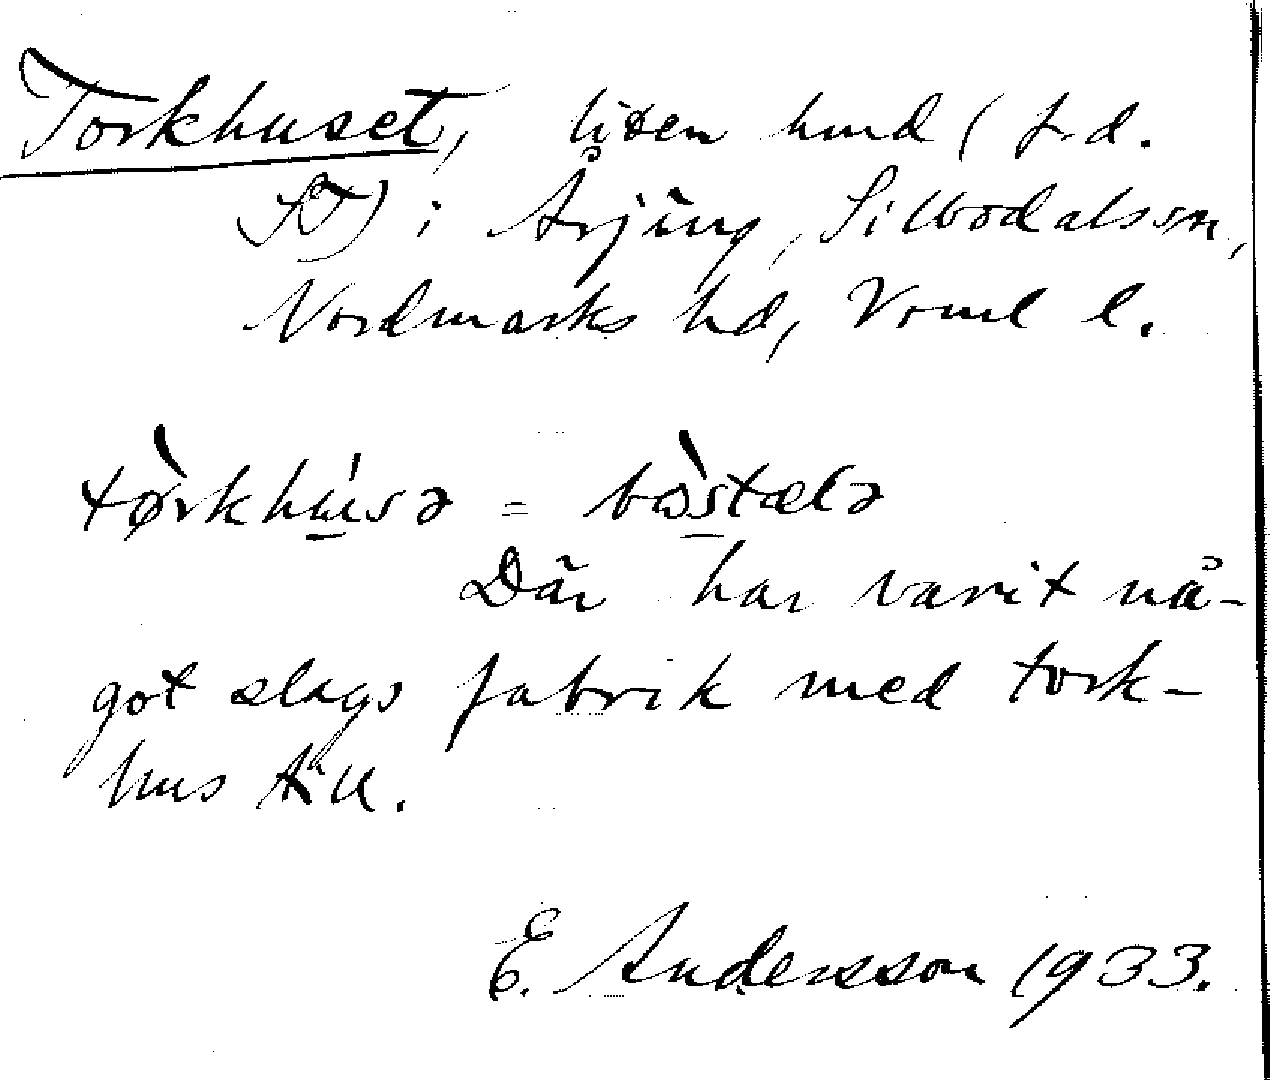 Torkhuset, liten hmd (f.d.
ST) i Årjäng, Silbodals sn,
Nordmarks hd, Vrml l.
tø̀rkhúsə = bòstælə
Där har varit nå-
got slags fabrik med tork-
hus till.
E. Andersson 1933.